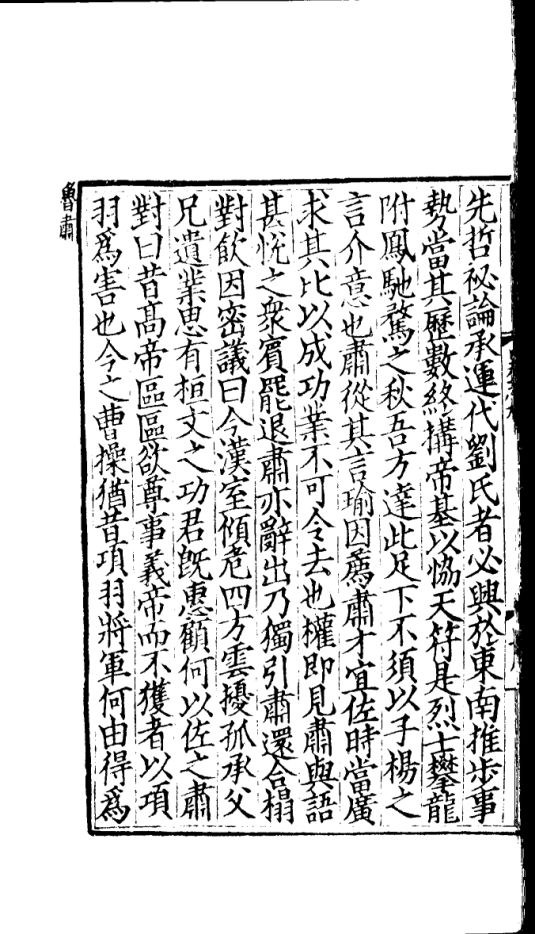 先哲祕論承運代劉氏者必興於東南推步事
勢當其歷數終搆帝基以恊天符是烈士攀龍
附鳳馳騖之秋吾方達此足下不須以子楊之
言介意也肅從其言瑜因薦肅才宜佐時當廣
求其比以成功業不可令去也權即見肅與語
甚悅之衆賓罷退肅亦辭出乃獨引肅還合榻
對飲因密議曰今漢室傾危四方雲擾孤承父
兄遺業思有桓文之功君旣惠顧何以佐之肅
對曰昔髙帝區區欲尊事義帝而不獲者以項
羽爲害也今之曹操猶昔項羽將軍何由得爲
魯肅